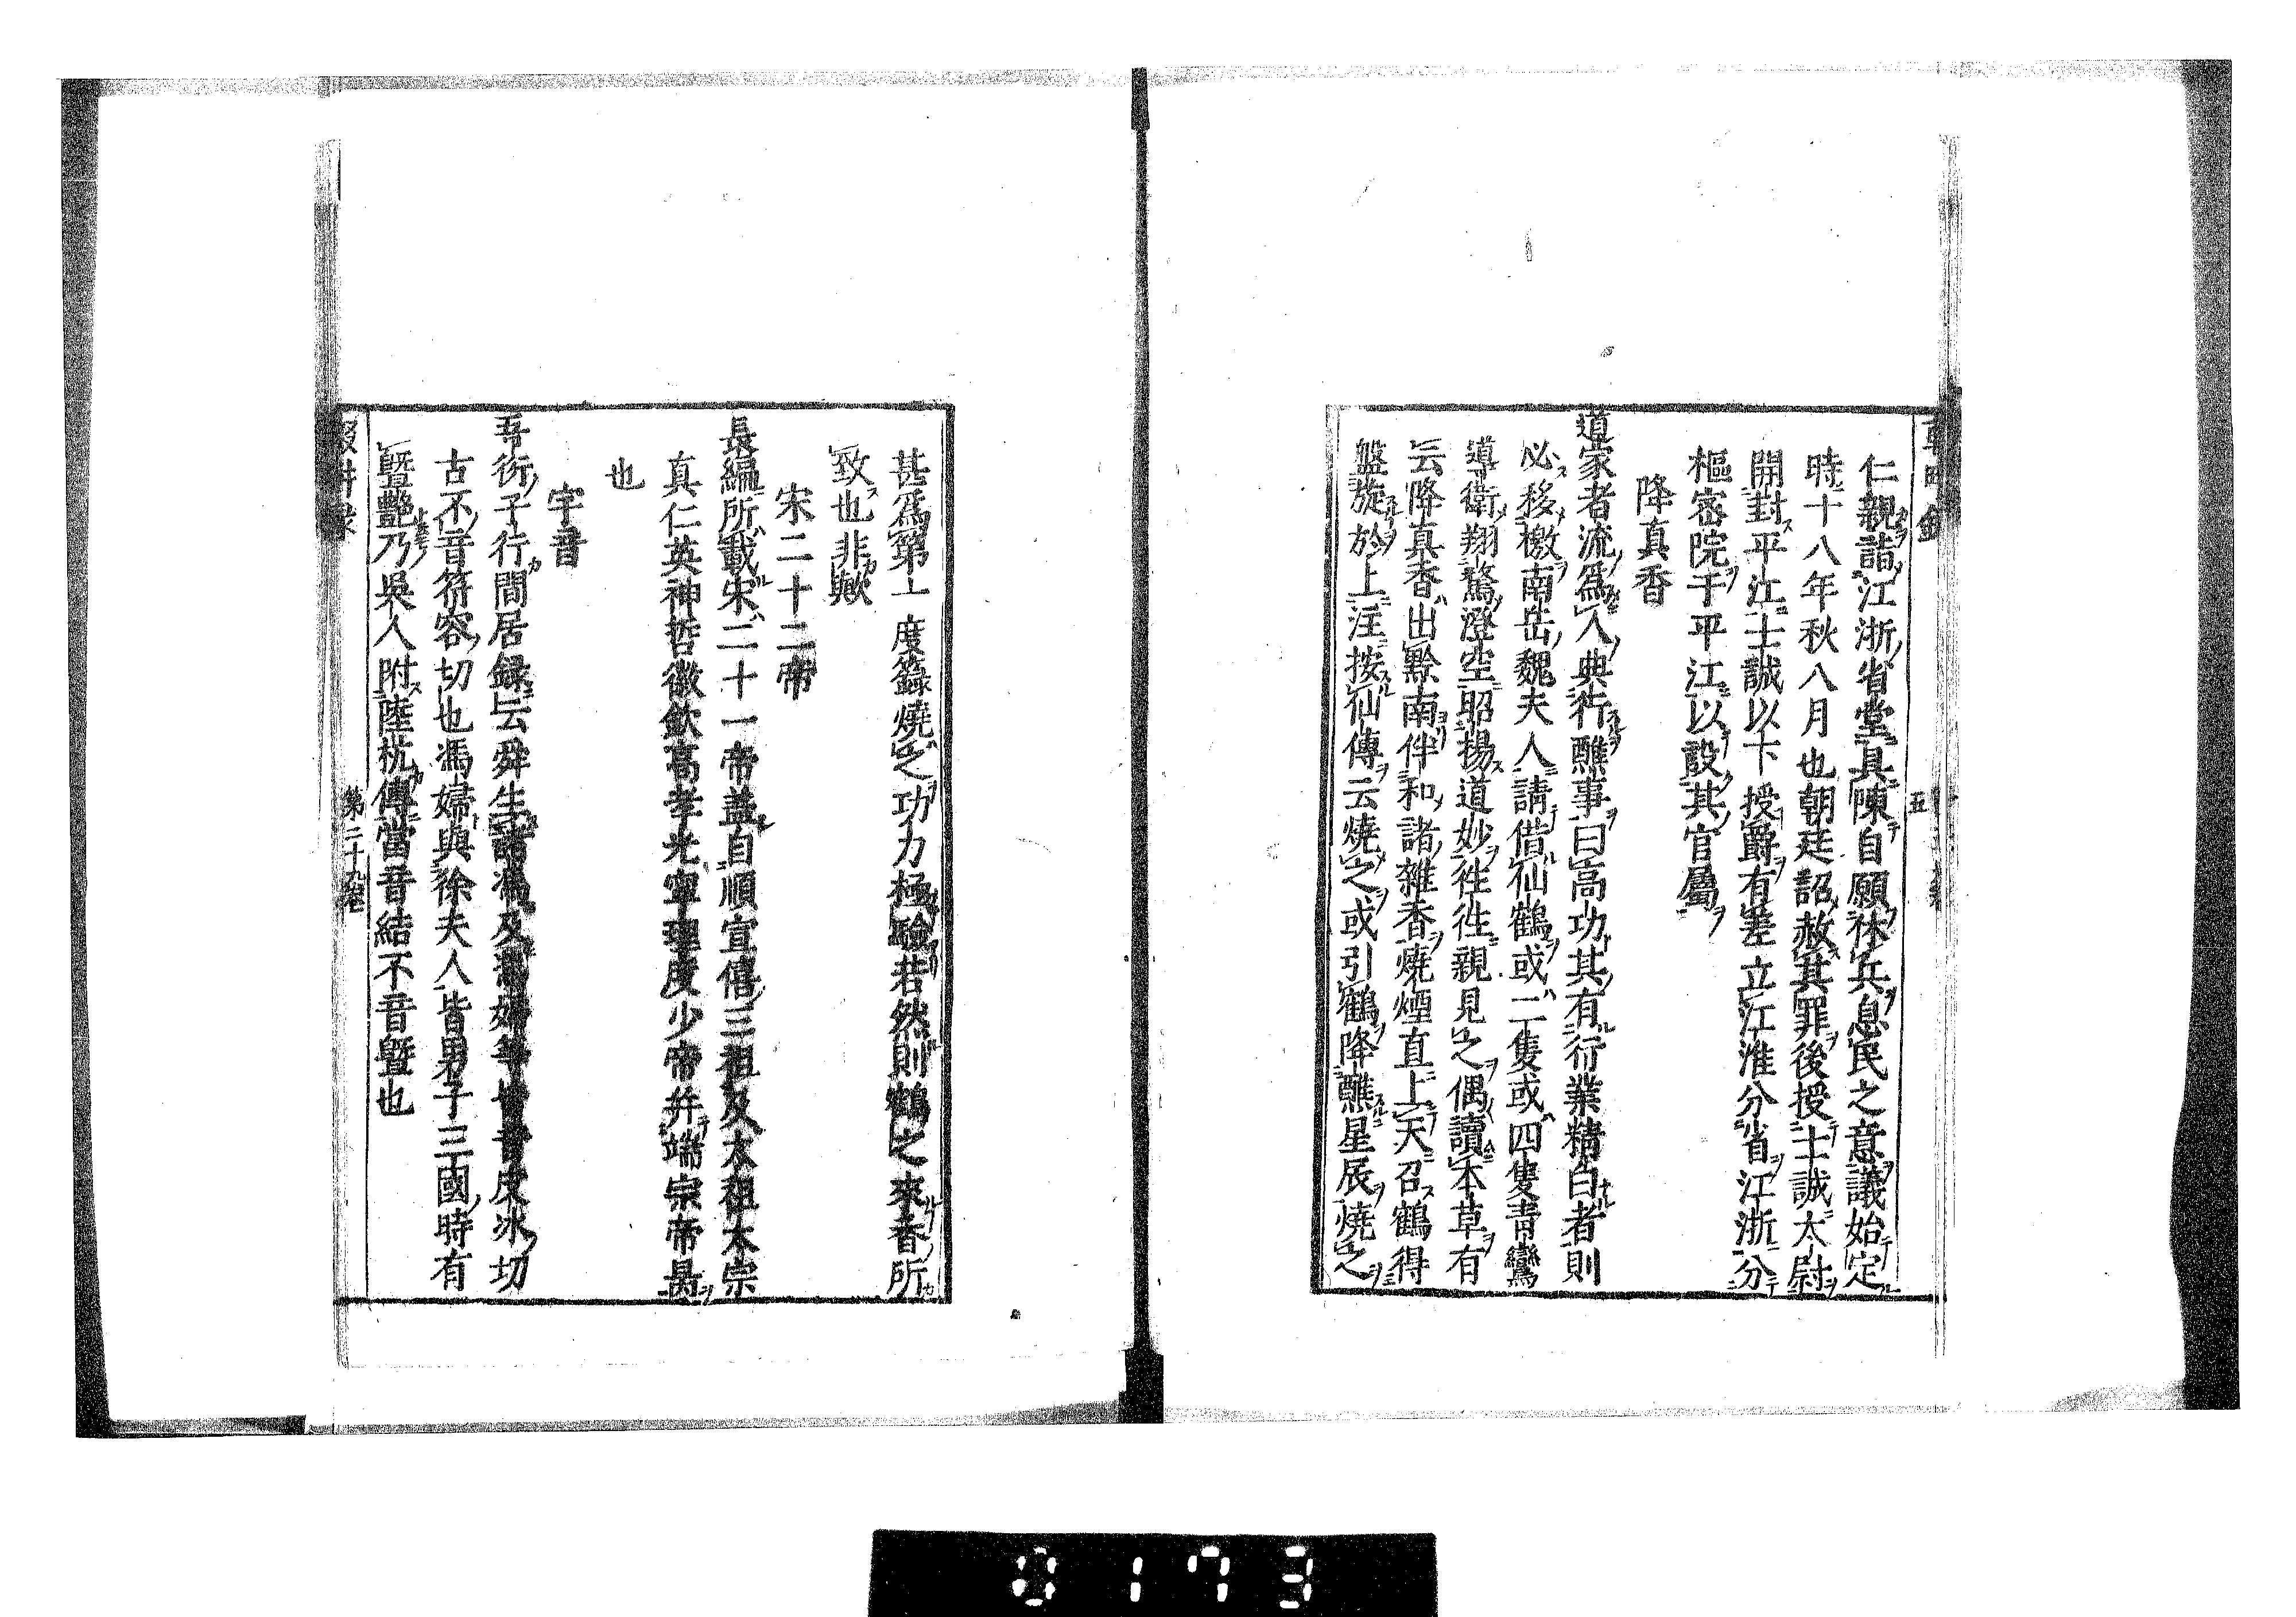 仁親詣江浙省堂具陳自願休兵息民之意議始定
時十八年秋八月也朝廷詔赦其罪後授士誠太尉
開封平江士誠以下授爵有差立江淮分省江浙分
樞密院于平江以設其官屬
降真香
道家者流爲人典行醮事曰高功其有行業精白者則
必移檄南岳魏夫人請借仙鶴或二隻或四隻青鸞
導衛翔鶩澄空昭揚道妙徃徃親見之偶讀本草有
云降真香出黔南伴和諸雜香燒煙直上天召鶴得
盤旋於上注按仙傳云燒之或引鶴降醮星辰燒之
甚爲第一度籙燒之功力極驗若然則鶴之來香所
致也非歟
宋二十二帝
長編所載宋二十一帝蓋自順宣僖三祖及太祖太宗
真仁英神哲徽欽高孝光寧理度少帝幷端宗帝昺
也
字音
吾衍子行間居録云舜生諸馮及馮婦等皆音皮冰切
古不音符容切也馮婦與徐夫人皆男子三國時有
暨艷乃吳人附陸杭傳當音結不音曁也
第二十九卷
五